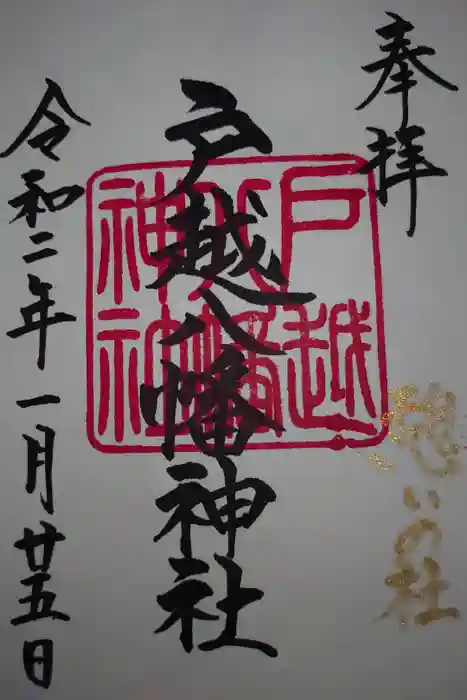 奉拝
憩いの社
戸越八幡神社
戸越
八幡
神社
令和二年一月廿五日